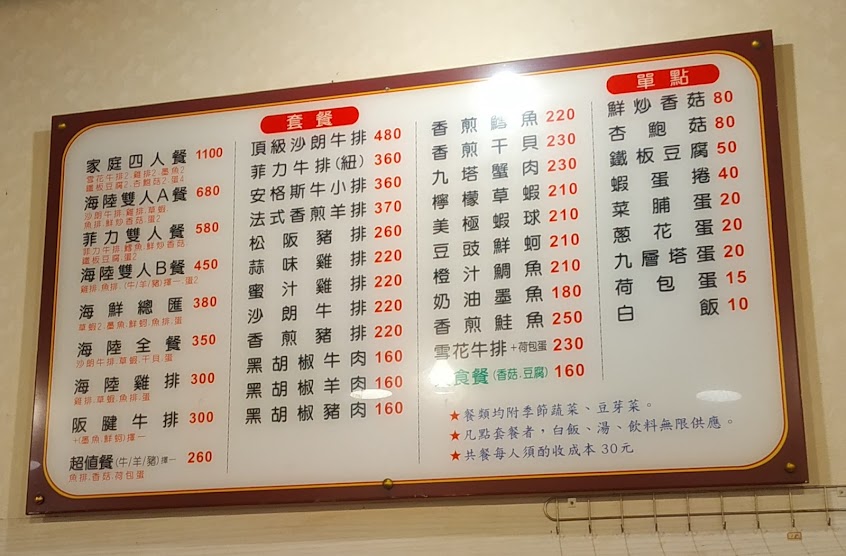 家庭四人餐 1100
雪花牛排2.雞排2.墨魚2
鐵板豆腐2.杏鮑菇2.蛋4
海陸雙人A餐 680
沙朗牛排.雞排.草蝦.
魚排.鮮炒香菇.蛋2
菲力雙人餐 580
菲力牛排.鱈魚.鮮炒香菇
鐵板豆腐.蛋2
海陸雙人B餐 450
雞排.魚排.(牛/羊/豬)擇一.蛋2
海鮮總匯 380
草蝦2.墨魚.鮮蚵.魚排.蛋
海陸全餐 350
沙朗牛排.草蝦.干貝.蛋
海陸雞排 300
雞排.草蝦.魚排.蛋
阪腱牛排 300
+(墨魚.鮮蚵)擇一
超值餐(牛/羊/豬)擇一 260
魚排.香菇.荷包蛋
套餐
頂級沙朗牛排 480
菲力牛排(紐) 360
安格斯牛小排 360
法式香煎羊排 370
松阪豬排 260
蒜味雞排 220
蜜汁雞排 220
沙朗牛排 220
香煎豬排 220
黑胡椒牛肉 160
黑胡椒羊肉 160
黑胡椒豬肉 160
香煎鱈魚 220
香煎干貝 230
九塔蟹肉 230
檸檬草蝦 210
美極蝦球 210
豆豉鮮蚵 210
橙汁鯛魚 210
奶油墨魚 180
香煎鮭魚 250
雪花牛排+荷包蛋 230
食餐(香菇.豆腐) 160
單點
鮮炒香菇 80
杏鮑菇 80
鐵板豆腐 50
蝦蛋捲 40
菜脯蛋 20
蔥花蛋 20
九層塔蛋 20
荷包蛋 15
白飯 10
★餐類均附季節蔬菜、豆芽菜。
★凡點套餐者，白飯、湯、飲料無限供應。
★共餐每人須酌收成本30元